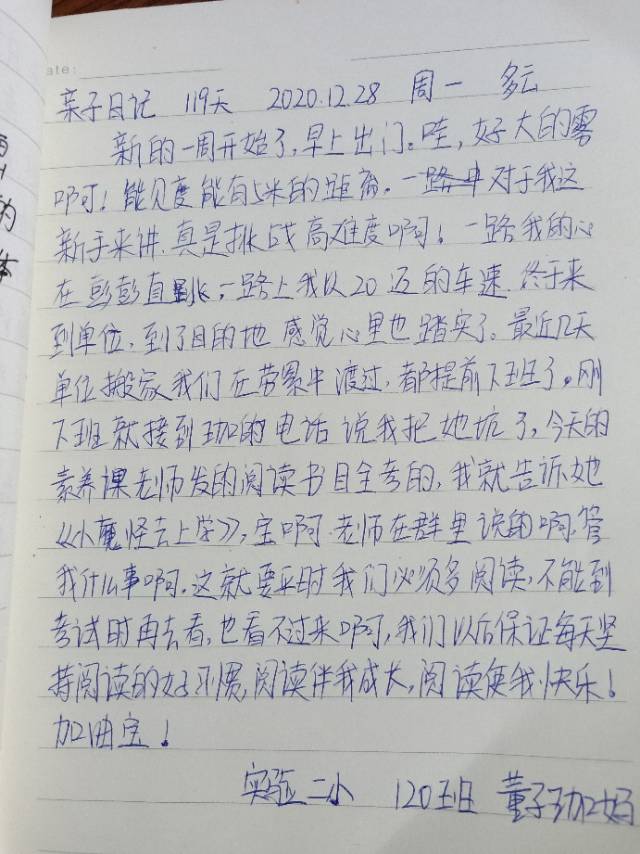 ate:
亲子日记 119天 2020.12.28 周一 多云
新的一周开始了,早上出门。哇,好大的雾
啊!能见度能有5米的距离。一路对于我这
新手来讲.真是挑战高难度啊!一路我的心
在彭彭直跳,一路上我以20迈的车速.终于来
到单位,到了目的地 感觉心里也踏实了。最近几天
单位搬家我们在劳累中渡过,都提前下班了。刚
下班就接到珈的电话 说我把她坑了,今天的
素养课老师发的阅读书目全考的,我就告诉她
《小魔怪去上学》,宝啊.老师在群里说的啊.管
我什么事啊.这就要平时我们必须多阅读,不能到
考试时再去看,也看不过来啊,我们以后保证每天坚
持阅读的好习惯,阅读伴我成长,阅读使我快乐!
加油宝!
实验二小 120班 董子珈妈
的